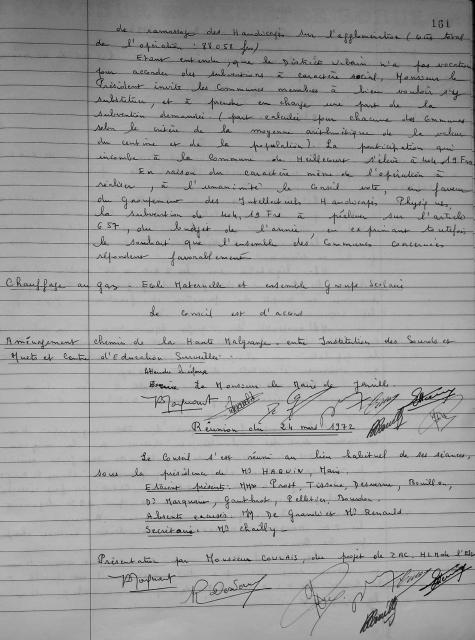 161
de ramassage des Handicapés sur l'agglomération (coût total
de l'opération : 88058 frs)
Etant entendu, que le District Urbain n'a pas vocation
pour accorder des subventions à caractère social, Monsieur le
Président invite les Communes membres à bien vouloir s'y
substituer, et à prendre en charge une part de la
subvention demandée (part calculée pour chacune des Communes
selon le critère de la moyenne arithmétique de la valeur
du centime et de la population). La participation qui
incombe à la Commune de Heillecourt s'élève à 404,19 Frs
En raison du caractère même de l'opération à
réaliser, à l'unanimité le Conseil vote, en faveur
du Groupement des Intellectuels Handicapés Physiques,
la subvention de 404,19 Frs à prélever sur l'article
657, du budget de l'année, en exprimant toutefois
le souhait que l'ensemble des Communes concernées
répondent favorablement
Chauffage au gaz - Ecole Maternelle et ensemble Groupe Scolaire
Le Conseil est d'accord
Aménagement chemin de la Haute Malgrange - entre Institution des Sourds et
Muets et Centre d'Education Surveillée -
Attendre
Ecrire à Monsieur le Maire de Jarville.
Réunion du 24 mars 1972
Le Conseil s'est réuni au lieu habituel de ses séances,
sous la présidence de Mr HAQUIN, Maire.
Etaient présents : MM Prost, Tissane, Bouillon,
Dr Marquant, Gauthrot, Pelletier, Bourdon.
Absents excusés : MM. De Grandi et Mr Renard
Secrétaire : Mr Chailly -
Présentation par Monsieur COULAIS, du projet de ZAC, HLM de